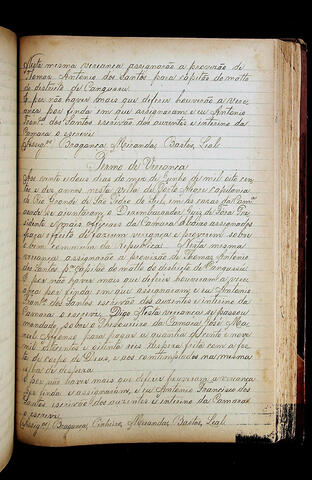 Nesta mesma vereança assignarão a provisão de
Thomas Antonio dos Santos para capitão do matto
do districto de Cangussu.
E por não haver mais que deferir houverão a vere
ança por finda em que assignaram e eu Antonio
Franco dos Santos escrivão dos auzentes e interino da
Camara o escrevi.
Assigdos Bragança Mirandas Bastos, Leal
Termo de Vereança
Aos vinte e dous dias do mez de Junho de mil oito cen
tos e dez annos nesta villa de Porto Alegre capitania
do Rio Grande de São Pedro do Sul, em as casas da Cam
ara se ajuntaram o Dezembargador Juiz de Fora Pre
sidente e mais officiaes da Camara abaixo assignados
para effeito de fazerem vereança e proverem sobre
o bem commum da Republica. Nesta mesma
vereança assignarão a provisão de Thomas Antonio
dos Santos pa capitão do matto do districto de Cangussu.
E por não haver mais que deferir houveram a verea
nça por finda em que assignaram e eu Antonio
Franco dos Santos escrivão dos auzentes e interino da
Camara o escrevi. Digo Nesta vereança se passou
mandado sobre o Thesoureiro da Camara José Ma
noel Affonso para pagar a quantia de cento e nove
mil oitocentos e oitenta reis despeza feita com a fes
ta do corpo de Deus, e aos contemplados na mesma
folha de despeza
E por não haver mais que deferir houveram a vereança
por finda e assignaram, e eu Antonio Francisco dos
Santos escrivão dos auzentes e interino da Camara
o escrevi.
(Assigdos) Bragança, Pinheiro, Mirandas Bastos, Leal.